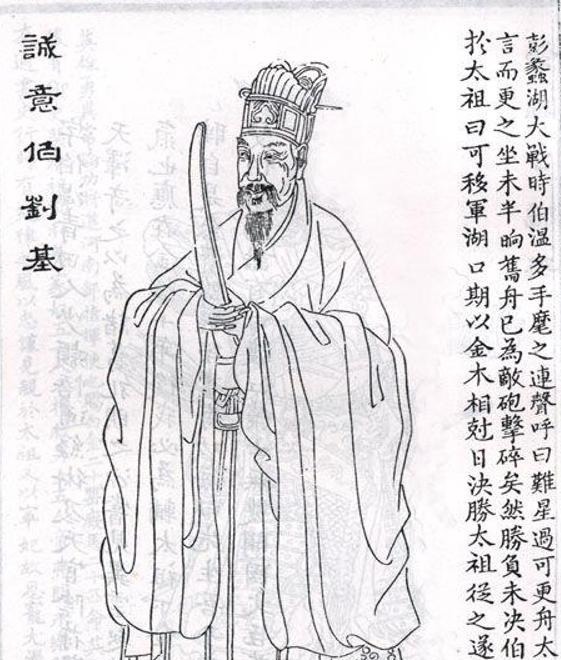 彭蠡湖大戰時伯温多手麾之連聲呼曰難星過可更舟太
言而更之坐未半晌舊舟已為敵砲擊碎矣然勝負未決伯
扵太祖曰可移軍湖口期以金木相尅日決勝太祖從之遂
誠意伯劉基